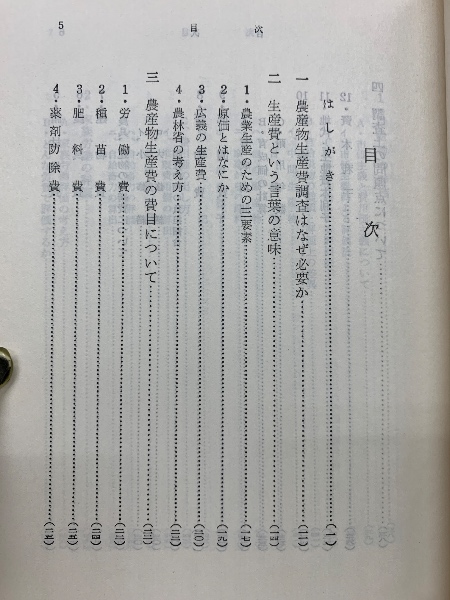 5 目次
目次
はしがき……(一)
一 農産物生産費調査はなぜ必要か……(一一)
二 生産費という言葉の意味……(一四)
1・農業生産のための三要素……(一七)
2・原価とはなにか……(一九)
3・広義の生産費……(二〇)
4・農林省の考え方……
三 農産物生産費の費目について……
1・労働費……
2・種苗費……(二四)
3・肥料費……(二五)
4・薬剤防除費……(二五)